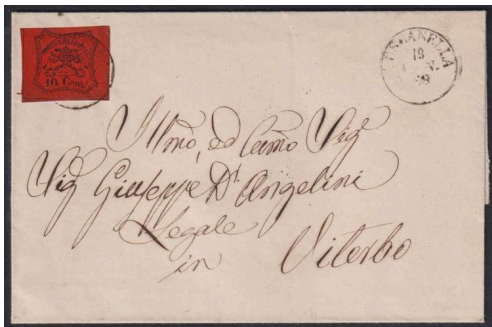 10 Cent.
TOSCANELLA
18
69
Illmo, ed Eccmo Sigr
Sig Giuseppe D'Angelini
Legale
in Viterbo